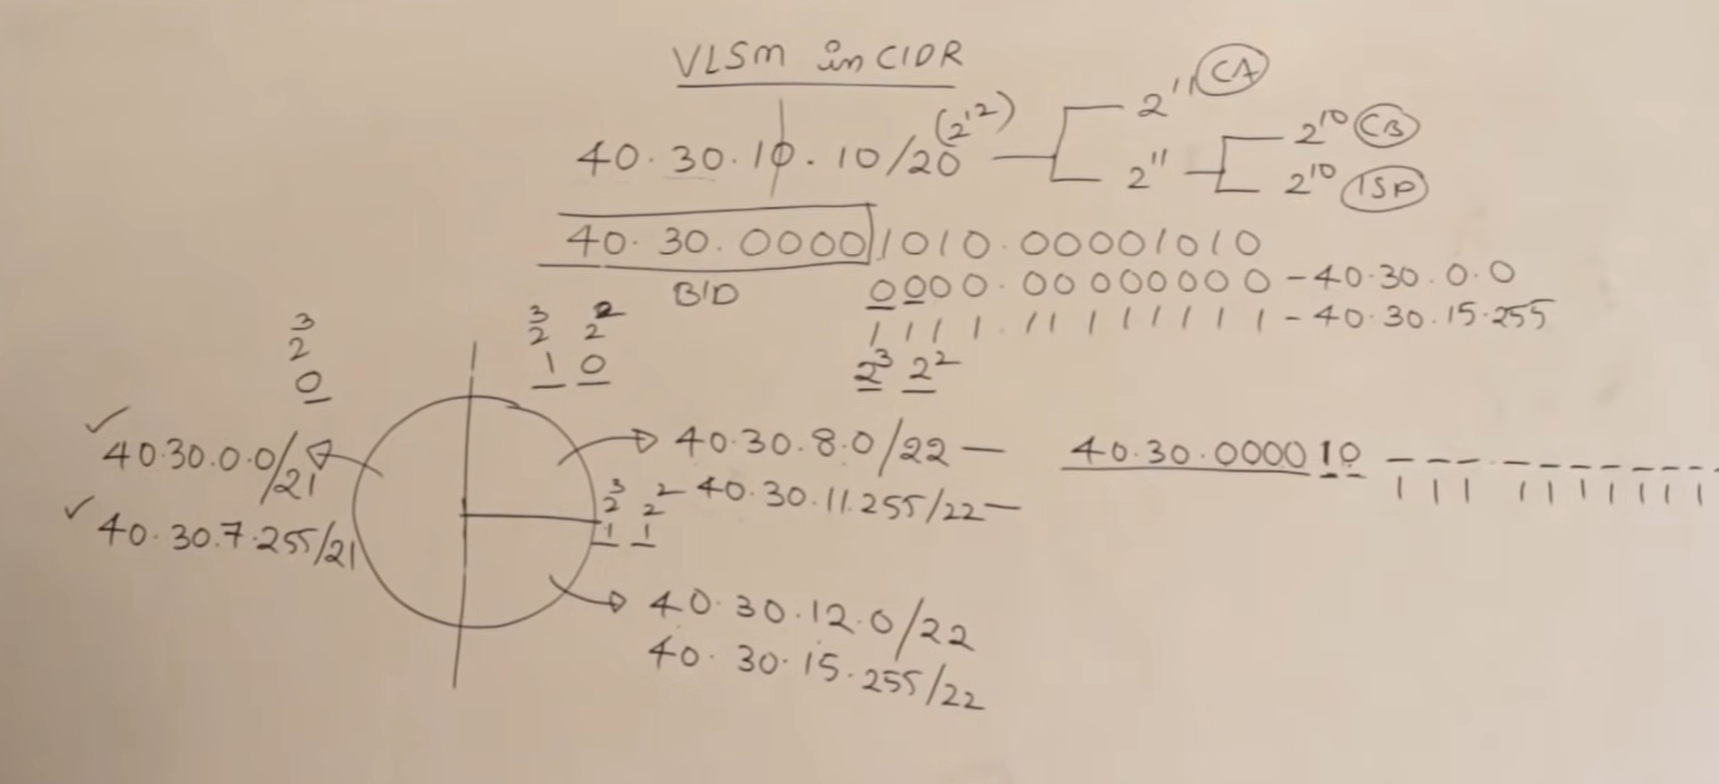 VLSM in CIDR
40.30.10.10/20 (2¹²)
2¹¹ CA
2¹¹
2¹⁰ CB
2¹⁰ ISP
40.30.0000|1010.00001010
BID
0000.00000000 - 40.30.0.0
1111.11111111 - 40.30.15.255
2³ 2²
2³
0
2³ 2²
1 0
✓ 40.30.0.0/21
✓ 40.30.7.255/21
40.30.8.0/22 —
40.30.11.255/22 —
40.30.000010 _ _ _ _ _ _ _ _ _ _
111 1111111
2³ 2²
1 1
40.30.12.0/22
40.30.15.255/22